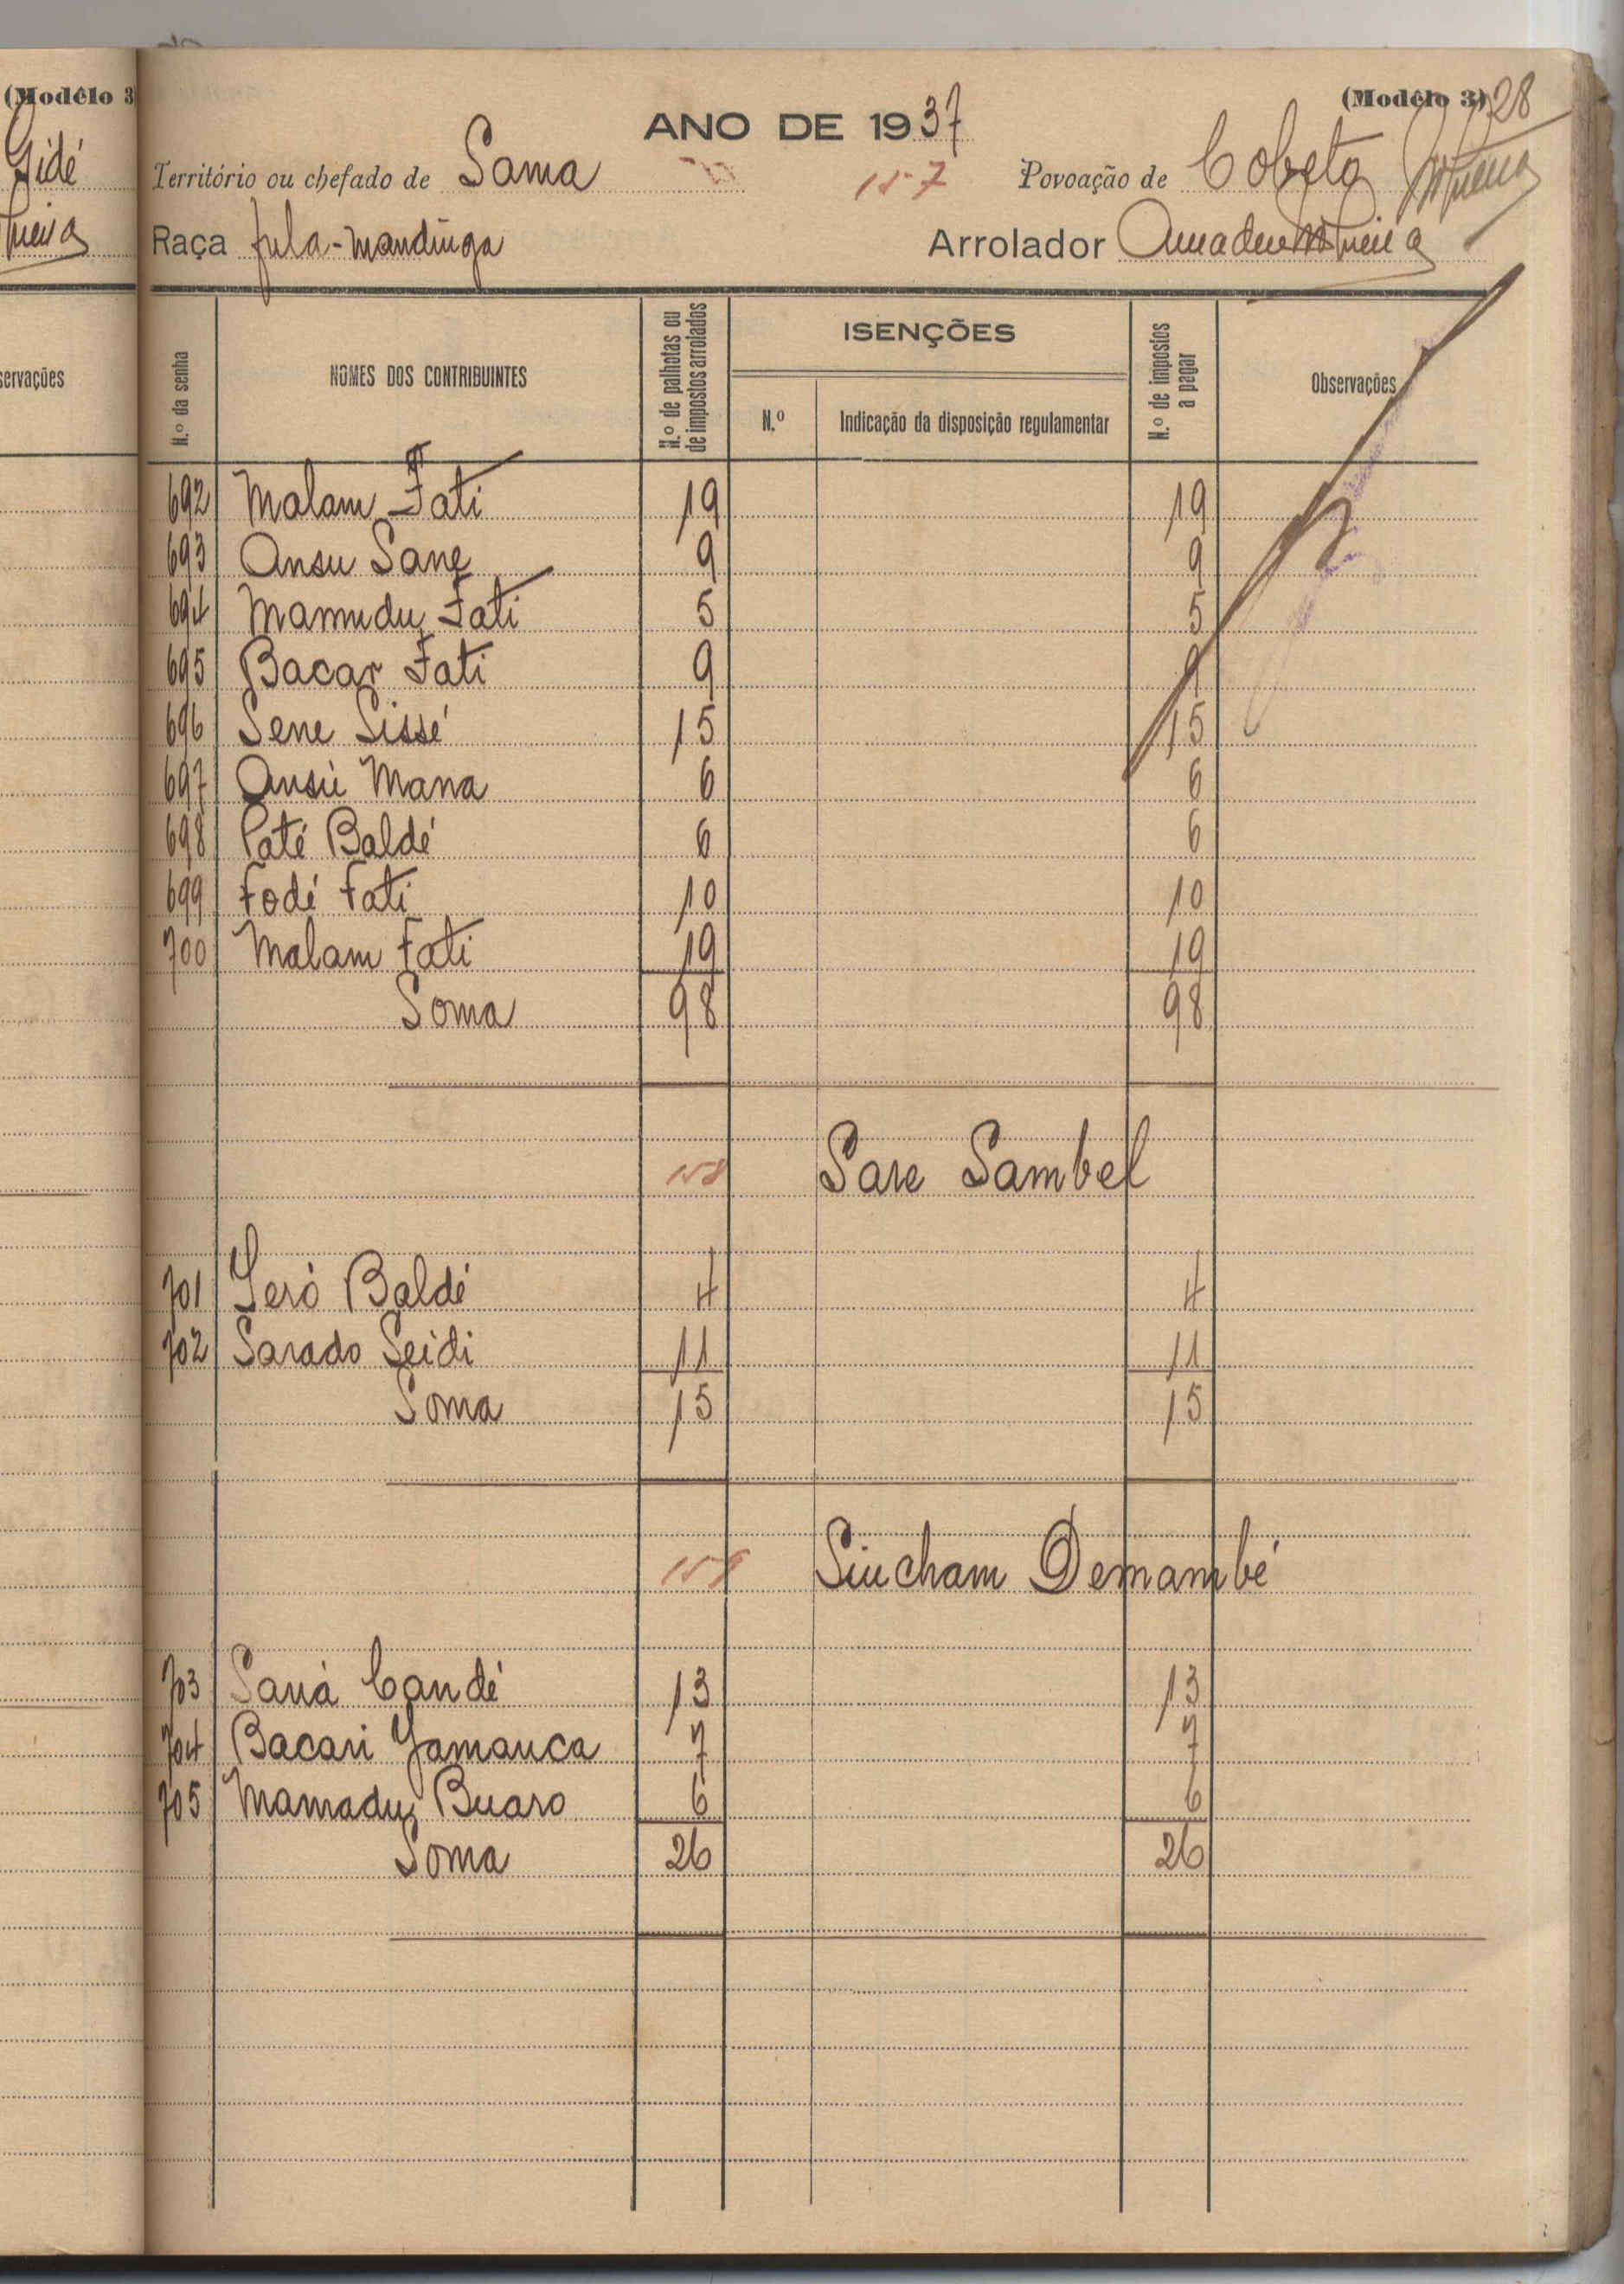 (Modêlo 3
(Modêlo 3) 28
ANO DE 1937
Território ou chefado de Sama 157 Povoação de Cobeto
Raça fula-mandinga Arrolador Amadeu
servações
N.º da senha
NOMES DOS CONTRIBUINTES
N.º de palhotas ou de impostos arrolados
ISENÇÕES
N.º
Indicação da disposição regulamentar
N.º de impostos a pagar
Observações
692 Malam Fati 19 19
693 Ansu Sane 9 9
694 Mamudu Fati 5 5
695 Bacar Fati 9 9
696 Sene Sissé 15 15
697 Ansú Mana 6 6
698 Paté Baldé 6 6
699 Fodé Fati 10 10
700 Malam Fati 19 19
Soma 98 98
158 Sare Sambel
701 Iero Baldé 4 4
702 Sarado Seidi 11 11
Soma 15 15
159 Sincham Demambé
703 Saná Candé 13 13
704 Bacari Jamanca 7 7
705 Mamadu Buaro 6 6
Soma 26 26